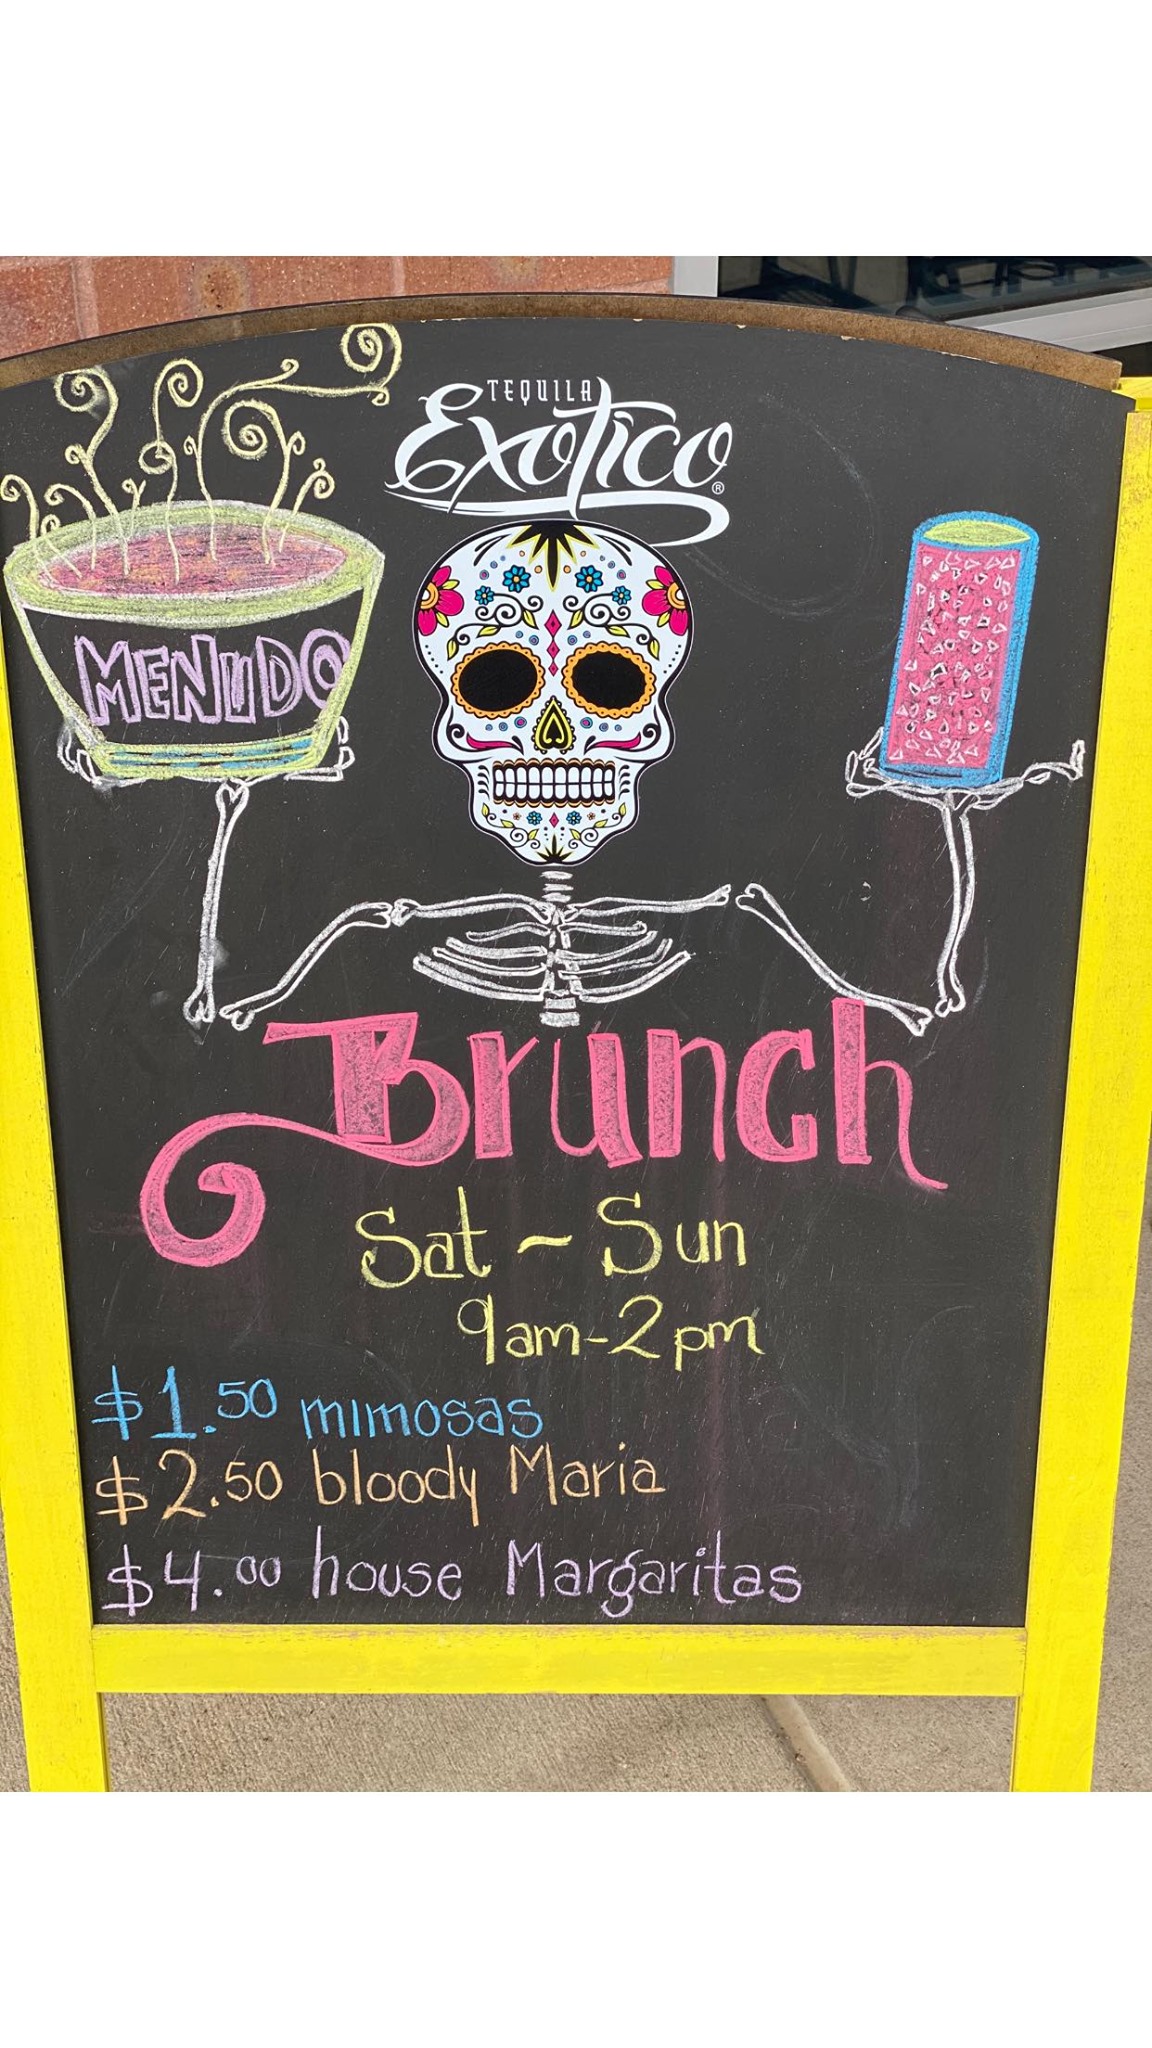 TEQUILA
Exotico®
MENUDO
Brunch
Sat ~ Sun
9am-2pm
$1.50 mimosas
$2.50 bloody Maria
$4.00 house Margaritas